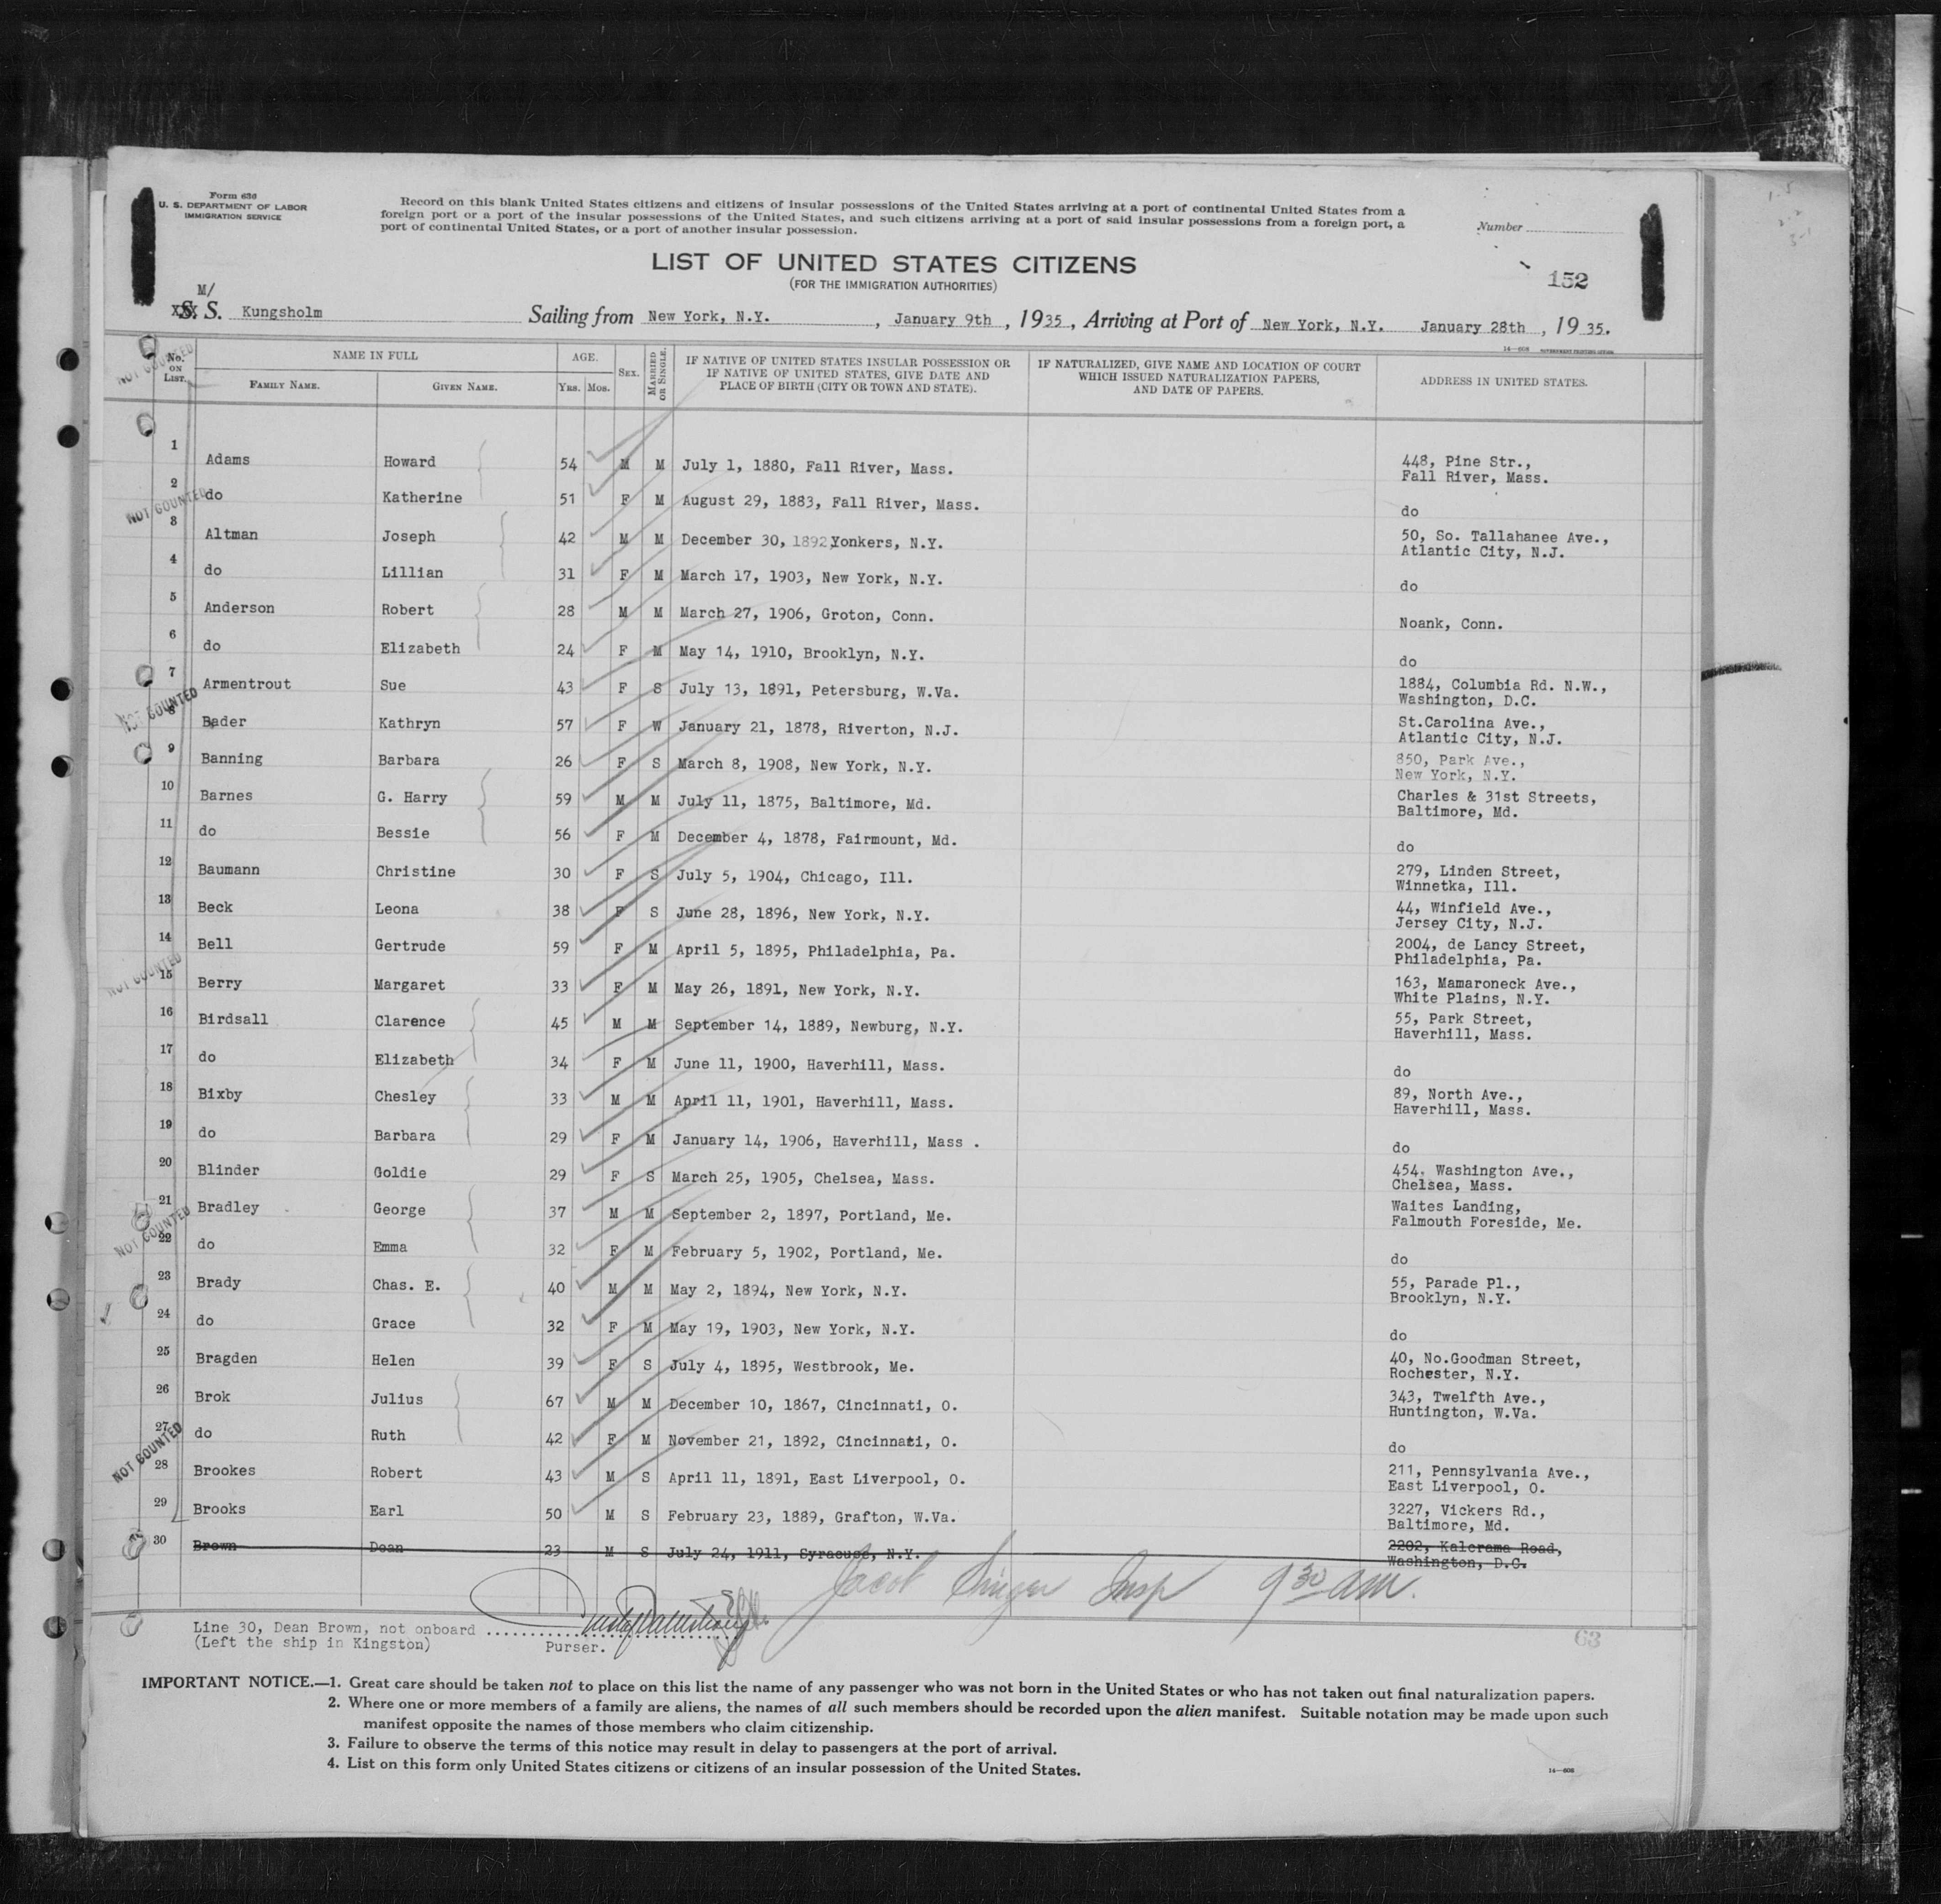 Form 630
U. S. DEPARTMENT OF LABOR
IMMIGRATION SERVICE
Record on this blank United States citizens and citizens of insular possessions of the United States arriving at a port of continental United States from a
foreign port or a port of the insular possessions of the United States, and such citizens arriving at a port of said insular possessions from a foreign port, a
port of continental United States, or a port of another insular possession.
Number
LIST OF UNITED STATES CITIZENS
(FOR THE IMMIGRATION AUTHORITIES)
152
M/
S. S. Kungsholm Sailing from New York, N.Y. , January 9th , 1935, Arriving at Port of New York, N.Y. January 28th , 1935.
No. ON LIST. NAME IN FULL FAMILY NAME. GIVEN NAME. AGE. YRS. MOS. SEX. MARRIED OR SINGLE. IF NATIVE OF UNITED STATES INSULAR POSSESSION OR IF NATIVE OF UNITED STATES, GIVE DATE AND PLACE OF BIRTH (CITY OR TOWN AND STATE). IF NATURALIZED, GIVE NAME AND LOCATION OF COURT WHICH ISSUED NATURALIZATION PAPERS, AND DATE OF PAPERS. ADDRESS IN UNITED STATES.
NOT COUNTED
1 Adams Howard 54 M M July 1, 1880, Fall River, Mass. 448, Pine Str., Fall River, Mass.
2 do Katherine 51 F M August 29, 1883, Fall River, Mass. do
NOT COUNTED
3 Altman Joseph 42 M M December 30, 1892 Yonkers, N.Y. 50, So. Tallahanee Ave., Atlantic City, N.J.
4 do Lillian 31 F M March 17, 1903, New York, N.Y. do
5 Anderson Robert 28 M M March 27, 1906, Groton, Conn. Noank, Conn.
6 do Elizabeth 24 F M May 14, 1910, Brooklyn, N.Y. do
7 Armentrout Sue 43 F S July 13, 1891, Petersburg, W.Va. 1884, Columbia Rd. N.W., Washington, D.C.
NOT COUNTED
8 Bader Kathryn 57 F W January 21, 1878, Riverton, N.J. St.Carolina Ave., Atlantic City, N.J.
9 Banning Barbara 26 F S March 8, 1908, New York, N.Y. 850, Park Ave., New York, N.Y.
10 Barnes G. Harry 59 M M July 11, 1875, Baltimore, Md. Charles & 31st Streets, Baltimore, Md.
11 do Bessie 56 F M December 4, 1878, Fairmount, Md. do
12 Baumann Christine 30 F S July 5, 1904, Chicago, Ill. 279, Linden Street, Winnetka, Ill.
13 Beck Leona 38 F S June 28, 1896, New York, N.Y. 44, Winfield Ave., Jersey City, N.J.
14 Bell Gertrude 59 F M April 5, 1895, Philadelphia, Pa. 2004, de Lancy Street, Philadelphia, Pa.
NOT COUNTED
15 Berry Margaret 33 F M May 26, 1891, New York, N.Y. 163, Mamaroneck Ave., White Plains, N.Y.
16 Birdsall Clarence 45 M M September 14, 1889, Newburg, N.Y. 55, Park Street, Haverhill, Mass.
17 do Elizabeth 34 F M June 11, 1900, Haverhill, Mass. do
18 Bixby Chesley 33 M M April 11, 1901, Haverhill, Mass. 89, North Ave., Haverhill, Mass.
19 do Barbara 29 F M January 14, 1906, Haverhill, Mass . do
20 Blinder Goldie 29 F S March 25, 1905, Chelsea, Mass. 454, Washington Ave., Chelsea, Mass.
21 Bradley George 37 M M September 2, 1897, Portland, Me. Waites Landing, Falmouth Foreside, Me.
NOT COUNTED
22 do Emma 32 F M February 5, 1902, Portland, Me. do
23 Brady Chas. E. 40 M M May 2, 1894, New York, N.Y. 55, Parade Pl., Brooklyn, N.Y.
24 do Grace 32 F M May 19, 1903, New York, N.Y. do
25 Bragden Helen 39 F S July 4, 1895, Westbrook, Me. 40, No.Goodman Street, Rochester, N.Y.
26 Brok Julius 67 M M December 10, 1867, Cincinnati, O. 343, Twelfth Ave., Huntington, W.Va.
27 do Ruth 42 F M November 21, 1892, Cincinnati, O. do
NOT COUNTED
28 Brookes Robert 43 M S April 11, 1891, East Liverpool, O. 211, Pennsylvania Ave., East Liverpool, O.
29 Brooks Earl 50 M S February 23, 1889, Grafton, W.Va. 3227, Vickers Rd., Baltimore, Md.
30 Brown Dean 23 M S July 24, 1911, Syracuse, N.Y. 2202, Kalorama Road, Washington, D.C.
Jacob Singer Insp 9 30 AM.
Line 30, Dean Brown, not onboard
(Left the ship in Kingston) Purser.
63
IMPORTANT NOTICE.—1. Great care should be taken not to place on this list the name of any passenger who was not born in the United States or who has not taken out final naturalization papers.
2. Where one or more members of a family are aliens, the names of all such members should be recorded upon the alien manifest. Suitable notation may be made upon such
manifest opposite the names of those members who claim citizenship.
3. Failure to observe the terms of this notice may result in delay to passengers at the port of arrival.
4. List on this form only United States citizens or citizens of an insular possession of the United States.
14—608